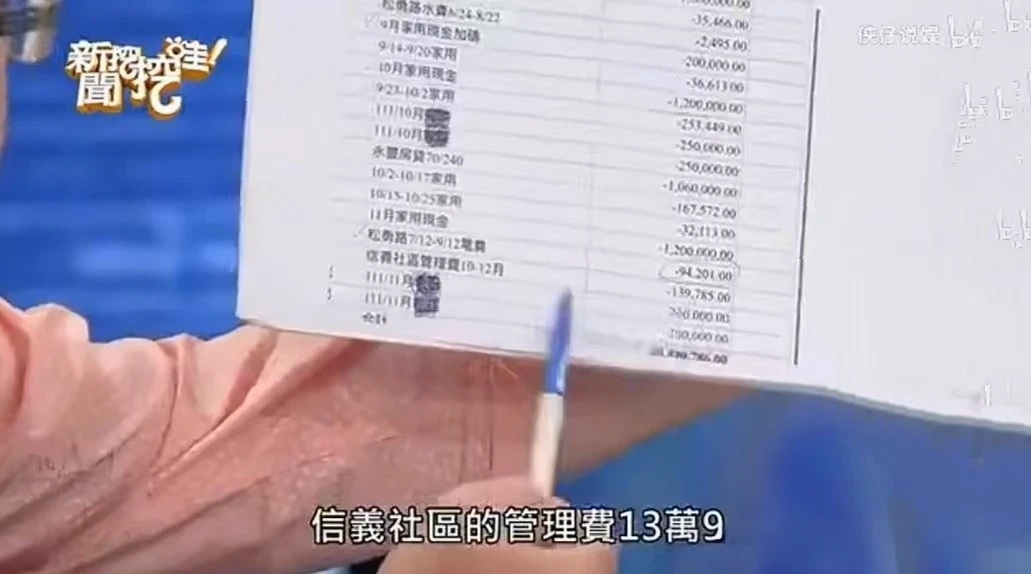 新聞挖挖哇!
侠仔说娱
-35,466.00
松勇路水費6/24-8/22 -2,495.00
9月家用現金加碼 -200,000.00
9/14-9/20家用 -56,613.00
10月家用現金 -1,200,000.00
9/23-10/2家用 -253,449.00
111/10月 -250,000.00
111/10月 -250,000.00
永豐房貸70/240 -1,060,000.00
10/2-10/17家用 -167,572.00
10/15-10/25家用 -32,113.00
11月家用現金 -1,200,000.00
松勇路7/12-9/12電費 -94,201.00
信義社區管理費10-12月 -139,785.00
111/11月
111/11月
合計
信義社區的管理費13萬9